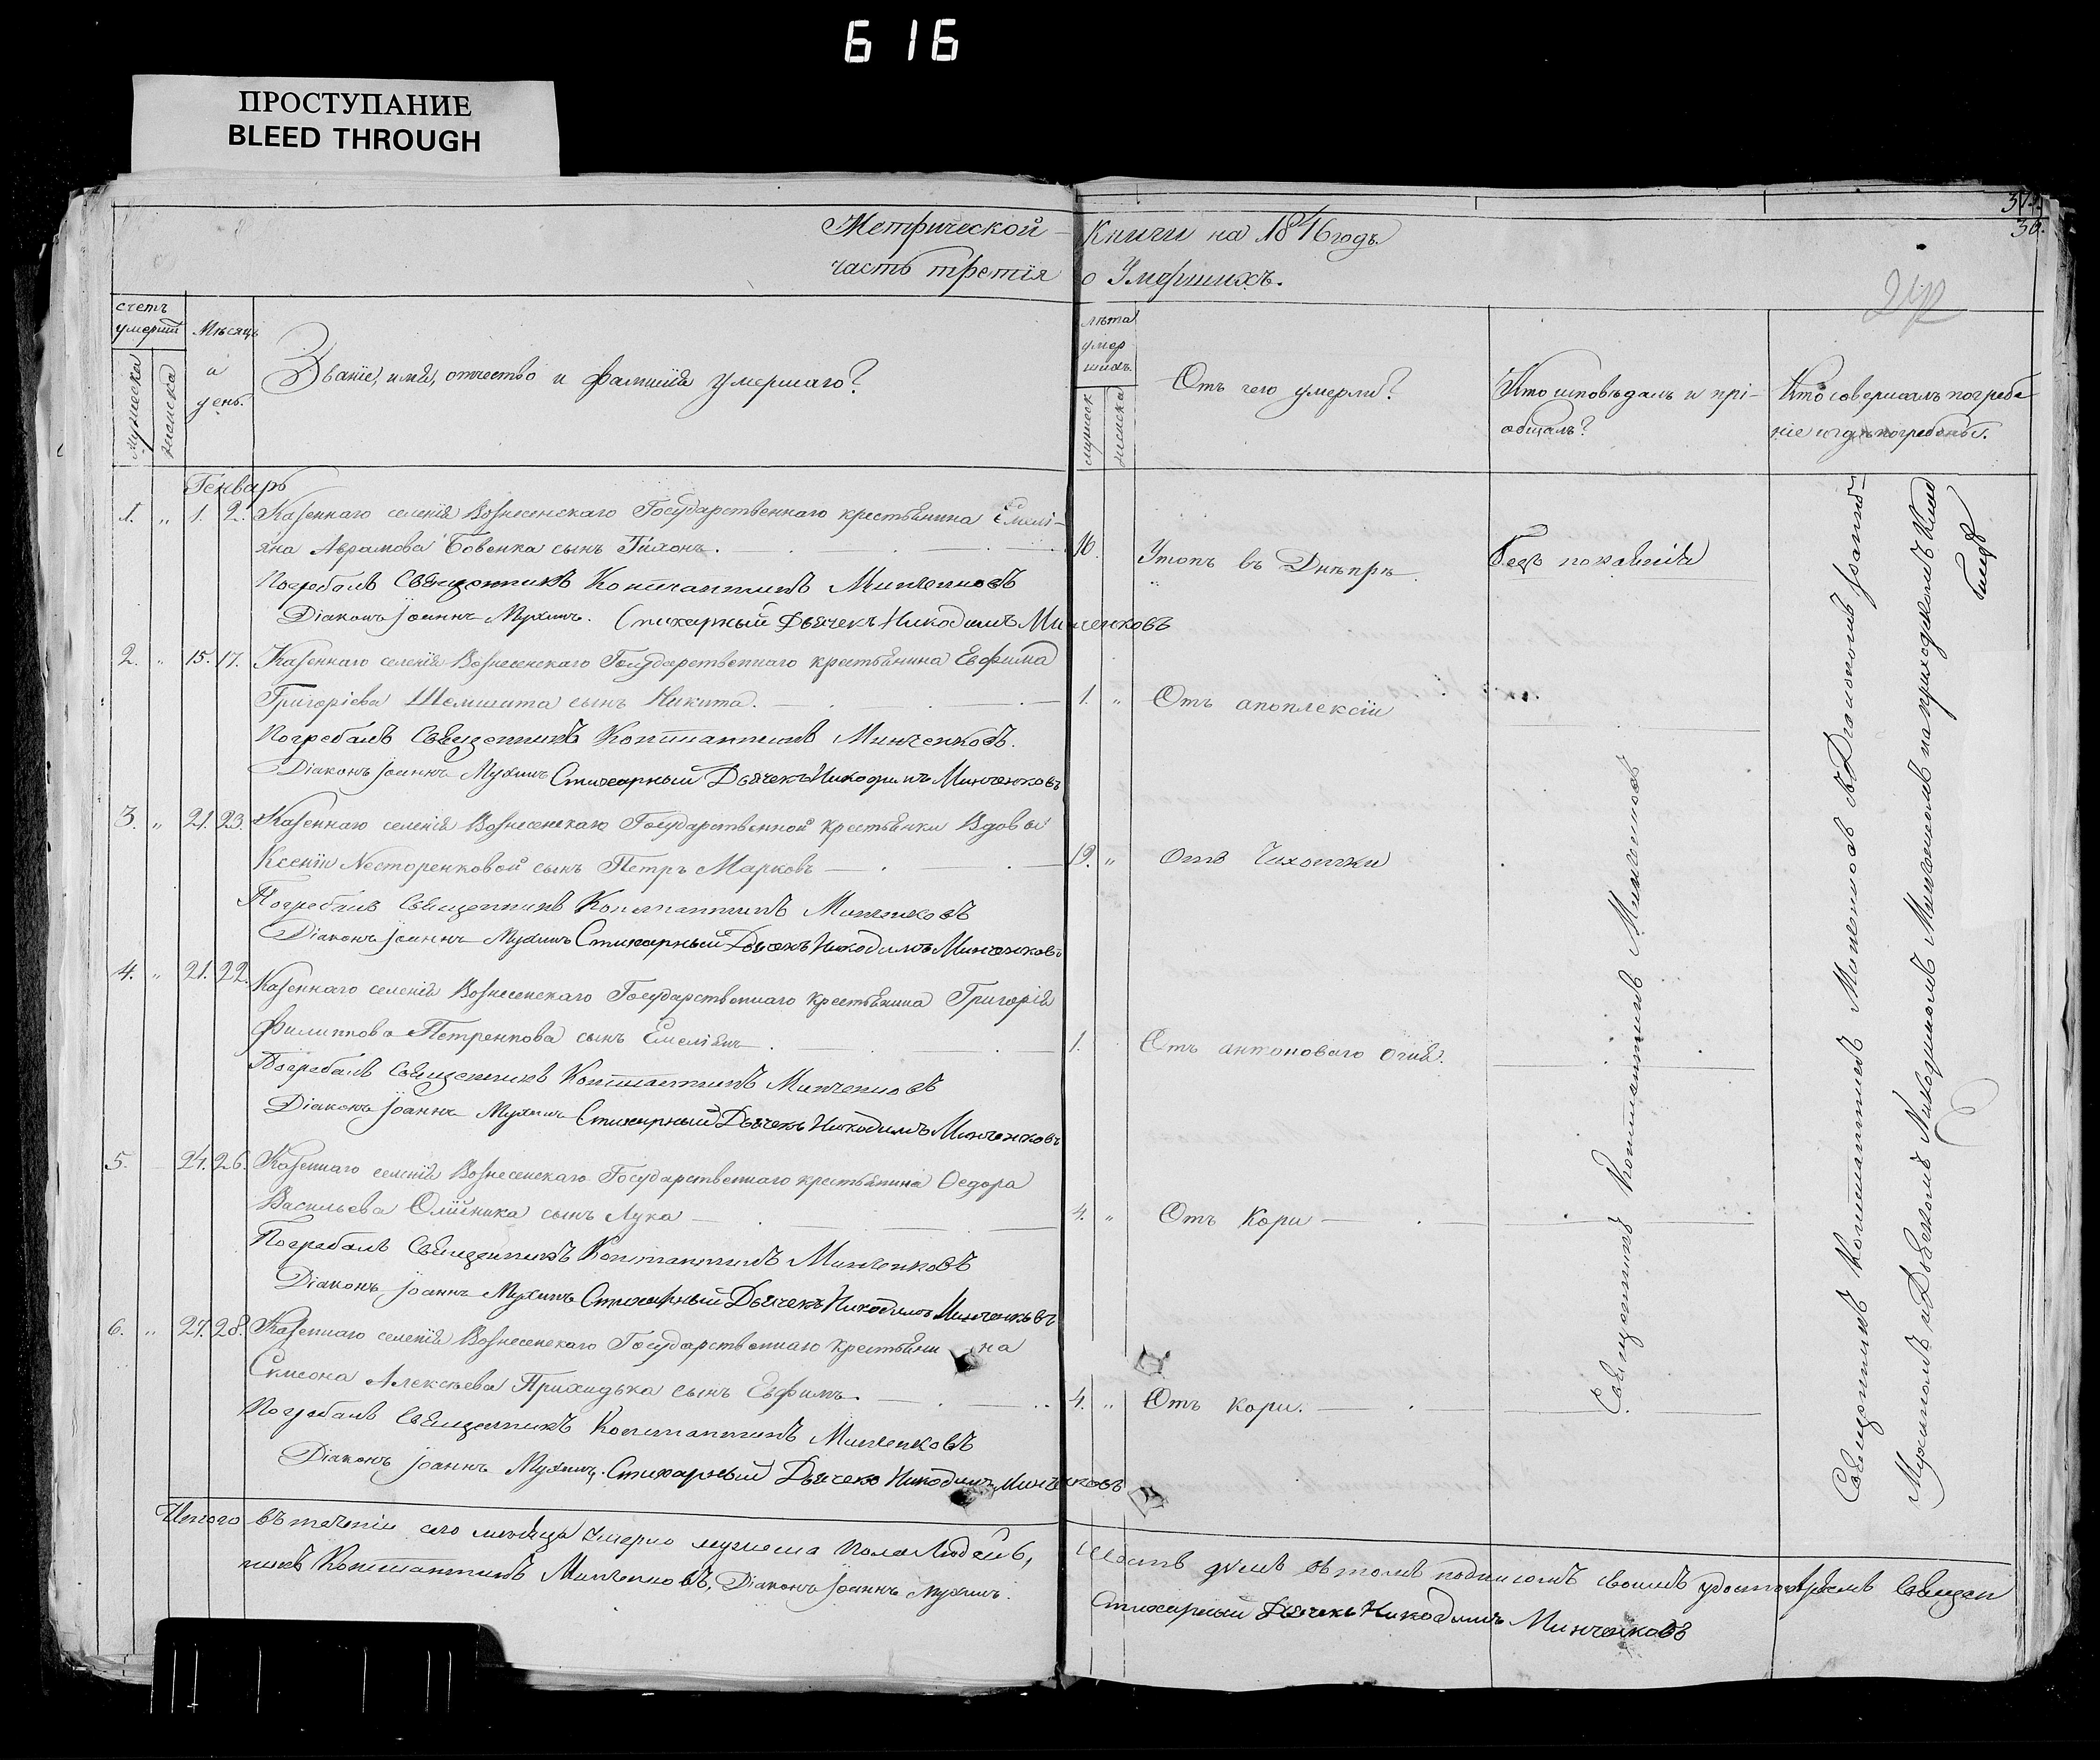 6 16
ПРОСТУПАНИЕ
BLEED THROUGH
Метрической Книги на 1846 годъ.
часть третія о Умершихъ.
счетъ умерш
мужеска
женска
Мѣсяцъ и день.
Званіе, имя, отчество и фамилія умершаго?
лѣта умер шихъ.
мужеск
женска
Отъ чего умерли?
Кто исповѣдалъ и прі-
общалъ?
Кто совершалъ погребе
ніе и гдѣ погребены.
Генварь
1. „ 1. 2. Казеннаго селенія Вознесенскаго Государственнаго крестьянина Емелі-
яна Аврамова Бовенка сынъ Тихонъ. 16. Утопъ въ Днѣпрѣ. Безъ покаянія
Погребалъ Священникъ Константинъ Минченковъ
Діаконъ Іоаннъ Мухинъ. Стихарный Дьячекъ Никодимъ Минченковъ
2. „ 15. 17. Казеннаго селенія Вознесенскаго Государственнаго крестьянина Евфима
Григоріева Шемшата сынъ Никита. 1. „ Отъ апоплексіи
Погребалъ Священникъ Константинъ Минченковъ.
Діаконъ Іоаннъ Мухинъ Стихарный Дьячекъ Никодимъ Минченковъ
3. „ 21. 23. Казеннаго селенія Вознесенскаго Государственной крестьянки Вдовы
Ксеніи Несторенковой сынъ Петръ Марковъ 19. „ Отъ Чихотки
Погребалъ Священникъ Константинъ Минченковъ
Діаконъ Іоаннъ Мухинъ Стихарный Дьячекъ Никодимъ Минченковъ
4. „ 21. 22. Казеннаго селенія Вознесенскаго Государственнаго крестьянина Григорія
Филиппова Петренкова сынъ Емеліянъ 1. Отъ антоноваго огня.
Погребалъ Священникъ Константинъ Минченковъ
Діаконъ Іоаннъ Мухинъ Стихарный Дьячекъ Никодимъ Минченковъ
5. 24. 26. Казеннаго селенія Вознесенскаго Государственнаго крестьянина Федора
Васильева Олійника сынъ Лука 4. „ Отъ Кори
Погребалъ Священникъ Константинъ Минченковъ
Діаконъ Іоаннъ Мухинъ Стихарный Дьячекъ Никодимъ Минченковъ
6. „ 27. 28. Казеннаго селенія Вознесенскаго Государственнаго крестьянина
Симеона Алексѣева Приходька сынъ Евфимъ. 4. „ Отъ кори.
Погребалъ Священникъ Константинъ Минченковъ
Діаконъ Іоаннъ Мухинъ. Стихарный Дьячекъ Никодимъ Минченковъ
Священникъ Константинъ Минченковъ
Священникъ Константинъ Минченковъ съ Діакономъ Іоанномъ
Мухинымъ и Дьячкомъ Никодимомъ Минченковымъ на приходскомъ Клад
бищѣ
Итого въ теченіи сего мѣсяца умерло мужеска пола Людей 6, Шесть душъ въ томъ подписомъ своимъ удостовѣряемъ Священ
никъ Константинъ Минченковъ, Діаконъ Іоаннъ Мухинъ. Стихарный Дьячекъ Никодимъ Минченковъ